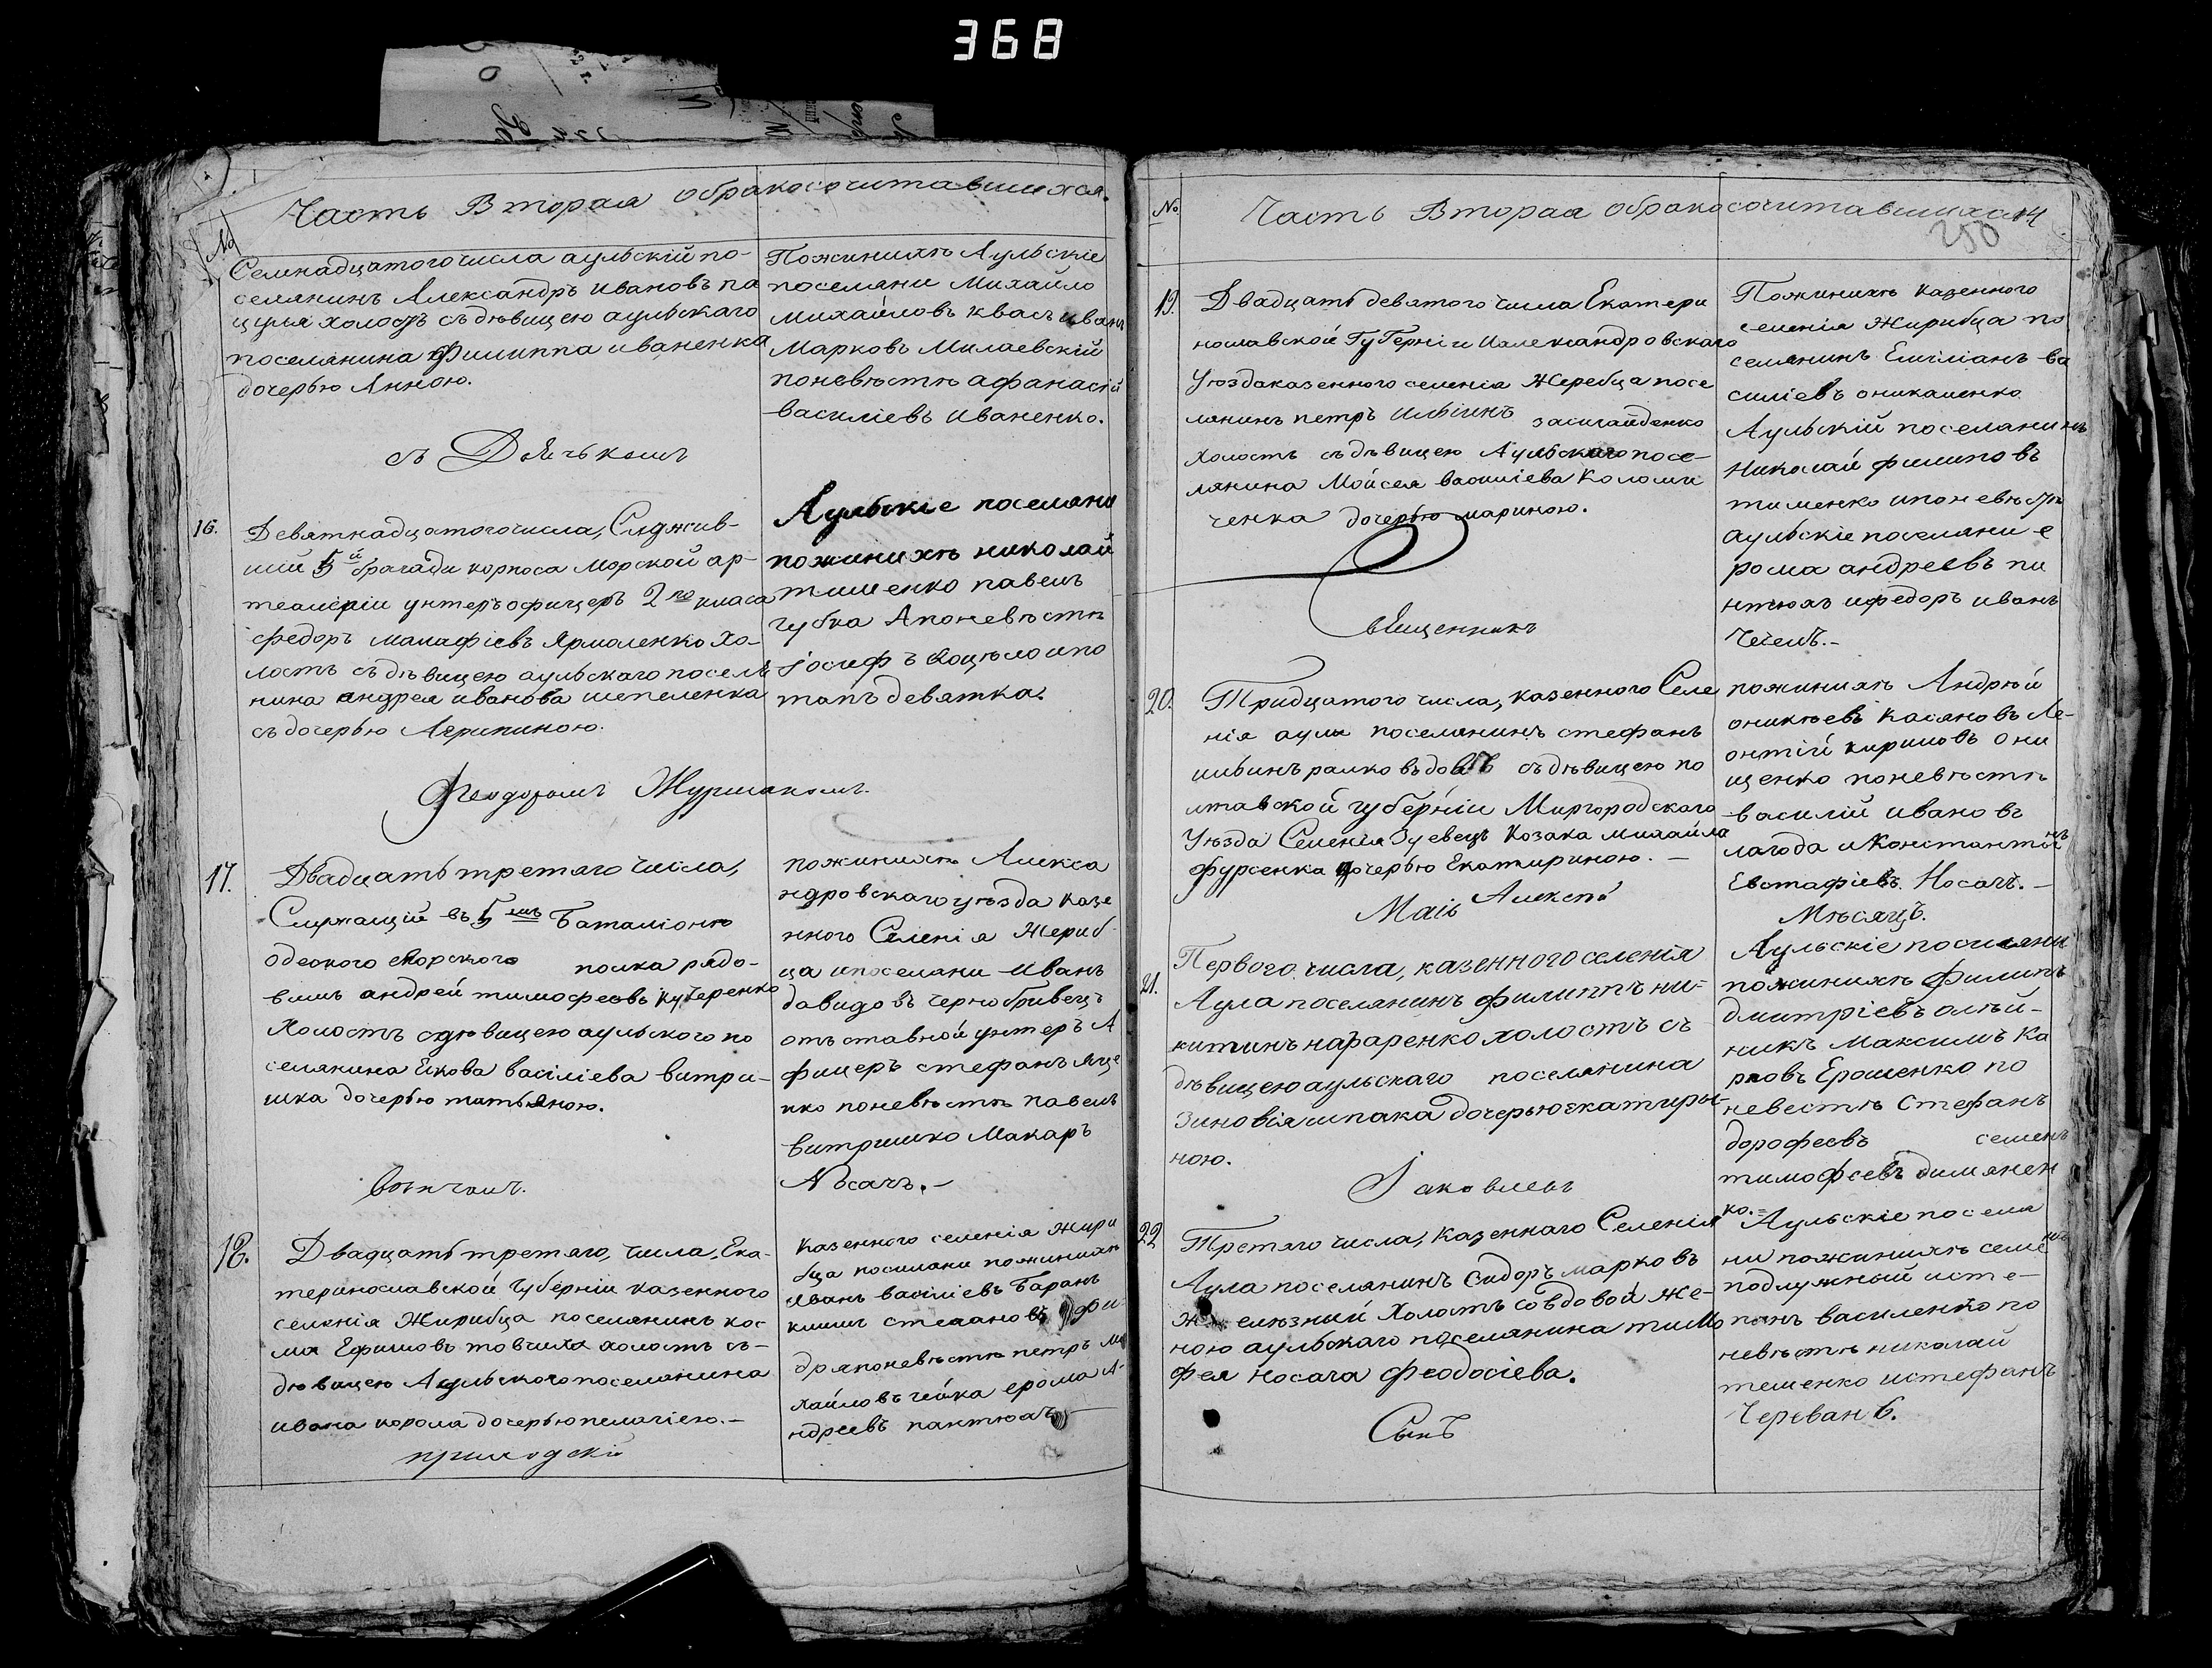 368
Часть Вторая обракосочитавшихся.
№
Семнадцатого числа аульскій по-
селянинъ Александръ Ивановъ па
цуля холостъ съ дѣвицею аульскаго
поселянина Филиппа иваненка
дочерью Анною.
Пожинихѣ Аульскіе
поселяни Михайло
Михайловъ квасъ иванъ
Марковъ Милаевскій
поневѣстѣ афанасій
василіевъ иваненко.
съ Дьячькомъ
16.
Девятнадцатого числа, Служив-
шій 5й брагади корпоса морской ар-
теалеріи унтеръ офицеръ 2го класа
федоръ малафіевъ Ярмоленко хо-
лостъ съ дѣвицею аульскаго поселя
нина андрея иванова шепеленка
съ дочерью Агрипиною.
Аульскіе поселяни
пожинихѣ николай
тименко павелъ
губка Апоневѣстѣ
іосифъ коцюло ипо
тапъ девятка.
Феодоромъ Журмакомъ.
17.
Двадцать третяго числа,
Служащій въ 5мъ Баталіоню
одеского егорского полка рядо-
вымъ андрей тимофеовъ кучеренко
Холостъ сдѣвицею аульского по
селянина Якова васіліева витри-
шка дочерью татьяною.
пожинихѣ Алекса
ндровскаго уѣзда казе
нного Селенія Жериб-
ца ипоселяни Иванъ
давидовъ чернобривецъ
отъставной унтеръ А
фицеръ стефанъ яце
нко поневѣстѣ павелъ
витришко Макаръ
Носачъ.-
вѣнчалъ.
18.
Двадцать третяго, числа, Ека-
теринославской Губерніи казенного
селенія Жирибца поселянинъ кос
ма Ефимовъ товчига холостъ съ-
дѣвицею Аульского поселянина
ивана короля дочерью пелагіею.-
Казенного селенія жири
бца поселяни пожинихѣ
иванъ васіліевъ Баранъ
климъ степановъ фи-
дря поневѣстѣ петръ ми
хайловъ чейка ерома А-
ндреевъ пантюхъ-
приходскій
№
Часть Вторая обракосочитавшихся
14
250
19.
Двадцать девятого числа Екатери
нославской ГуГерніи Иалександровскаго
Уюзда казенного селенія Жеребца посе
лянинъ петръ Ильинъ засигайденко
Холостъ съдѣвицею Аульского посе-
лянина Мойсея василіева Коломи
ченка дочерью мариною.
Пожинихѣ казенного
селенія Жирибца по
селянинъ Емиліанъ ва
силіевъ оникаленко
Аульскій поселанинъ
николай филиповъ
тименко ипоневѣстѣ
аульскіе поселяни е
рома андреевъ па
нтюхъ ифедоръ иванъ
Чечелъ.-
священникъ
20.
Тридцатого числа, казенного Селе
нія аула поселянинъ стефанъ
ильинъ ралко въдовъ съдѣвицею по
лтавской губерніи Миргородскаго
Уѣзда Селенія Зуевецъ Козака михайла
фурсенка дочерью Екатириною.-
пожинихѣ Андрѣй
оникѣевъ касяновъ Ле-
онтій кириловъ они
щенко поневѣстѣ
василій ивановъ
лагода иконстантинъ
Евстафіевъ Носачъ.-
Алексѣй
Маій
Мѣсяцъ.
21.
Первого числа, казенного селенія
Аула поселянинъ филиппъ ни-
китинъ назаренко холостъ съ
дѣвицею аульскаго поселянина
зиновія шпака дочерью екатири-
ною.
Аульскіе поселяни
пожинихѣ Филипъ
дмитріевъ олѣй-
никъ Максимъ ка
рповъ Ерошенко по
невестѣ стефанъ
дорофеевъ семенъ
тимофеевъ димянен
ко.=
Іаковлевъ
22
Третяго числа, Казеннаго Селенія
Аула поселянинъ Сидоръ марковъ
желѣзний Холостъ совдовой же-
ною аульскаго поселянина тимо
фея носача феодосіева.
Аульскіе посела
ни пожинихѣ семенъ
подлужный исте-
панъ василенко по
невѣстѣ николай
теменко истефанъ
Череванъ.
Сынъ